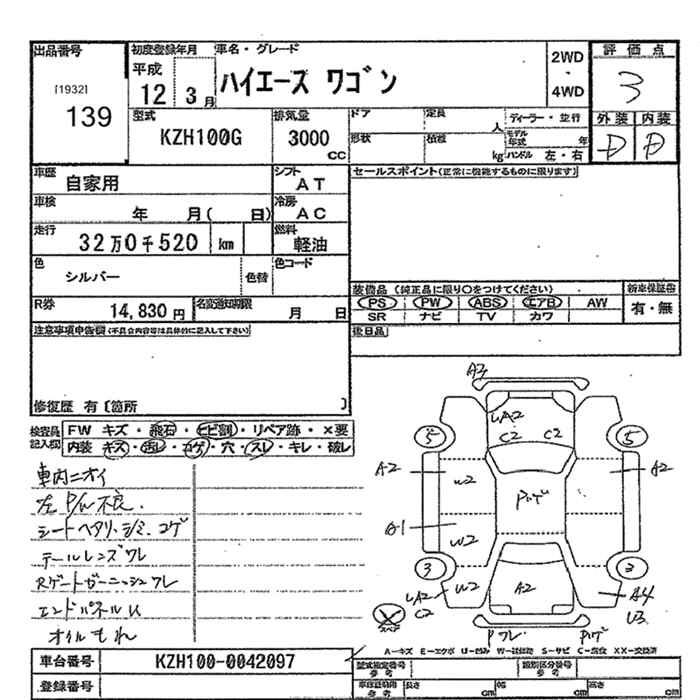 出品番号
[1932]
139
初度登録年月
平成
12 3月
車名・グレード
ハイエース ワゴン
2WD
・
4WD
評価点
3
外装 内装
D D
型式
KZH100G
排気量
3000
CC
ドア
定員
人
ディーラー・並行
形状
積載
kg
モデル年式 年
ハンドル 左・右
車歴
自家用
シフト
AT
車検
年 月( 日)
冷房
AC
走行
32万0千520 km
燃料
軽油
色
シルバー
色替
色コード
R券
14,830円
名変通知期限
月 日
セールスポイント(正常に機能するものに限ります)
装備品 (純正品に限り○をつけてください)
新車保証書
PS PW ABS エアB AW
有・無
SR ナビ TV カワ
後日品
注意事項申告欄(不具合内容等は具体的に記入して下さい)
修復歴 有〔箇所 〕
検査員記入欄
FW キズ・飛石・ヒビ割・リペア跡・×要
内装 キズ・汚レ・コゲ・穴・スレ・キレ・破レ
車内ニオイ
左P/W不良.
シートヘタリ.シミ.コゲ
テールレンズワレ
Rゲートガーニッシュワレ
エンドパネルU
オイルもれ
A3
UA2
C2 C2
5 5
A2 W2 A2
Pハゲ
A1 W2
3 3
UA2 C2 W2 A2 A4 U3
スペア
Pワレ Pハゲ
A-キズ E-エクボ U-凹み W-波状態 S-サビ C-腐食 XX-交換済
車台番号
KZH100-0042097
登録番号
型式指定番号
参考
類別区分番号
参考
車検証明用
参考
長さ cm
幅 cm
高さ cm